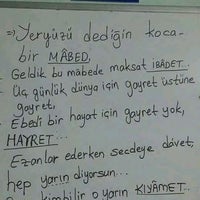 => Yeryüzü dediğin koca-
bir MÂBED,
- Geldik bu mâbede maksat İBÂDET.
- Üç günlük dünya için gayret üstüne
gayret,
- Ebedi bir hayat için gayret yok,
HAYRET...
Ezanlar ederken secdeye dâvet,
hep yarın diyorsun...
kimbilir o yarın KIYÂMET..